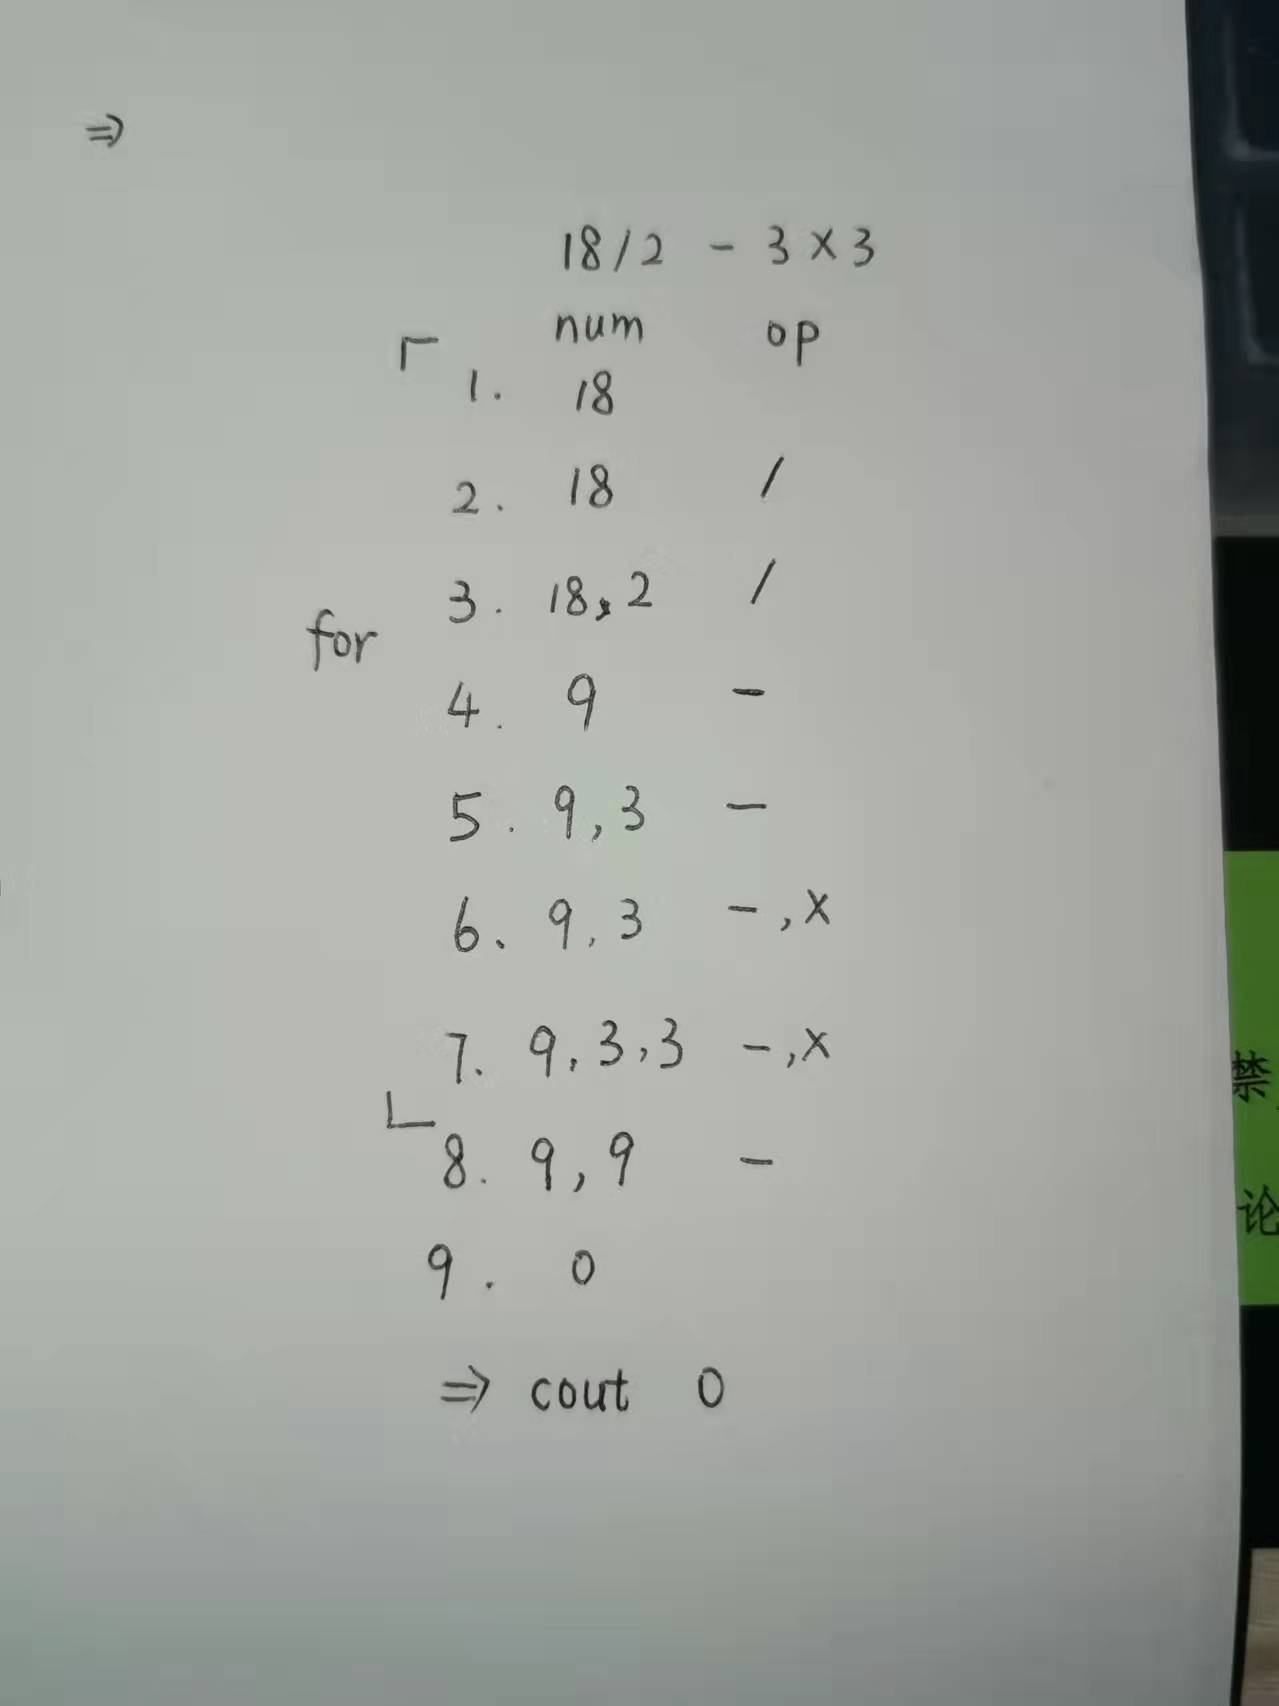 ⇒
18/2 - 3×3
num op
1. 18
2. 18 /
3. 18, 2 /
for
4. 9 -
5. 9, 3 -
6. 9, 3 -, ×
7. 9, 3, 3 -, ×
8. 9, 9 -
9. 0
⇒ cout 0
禁
论